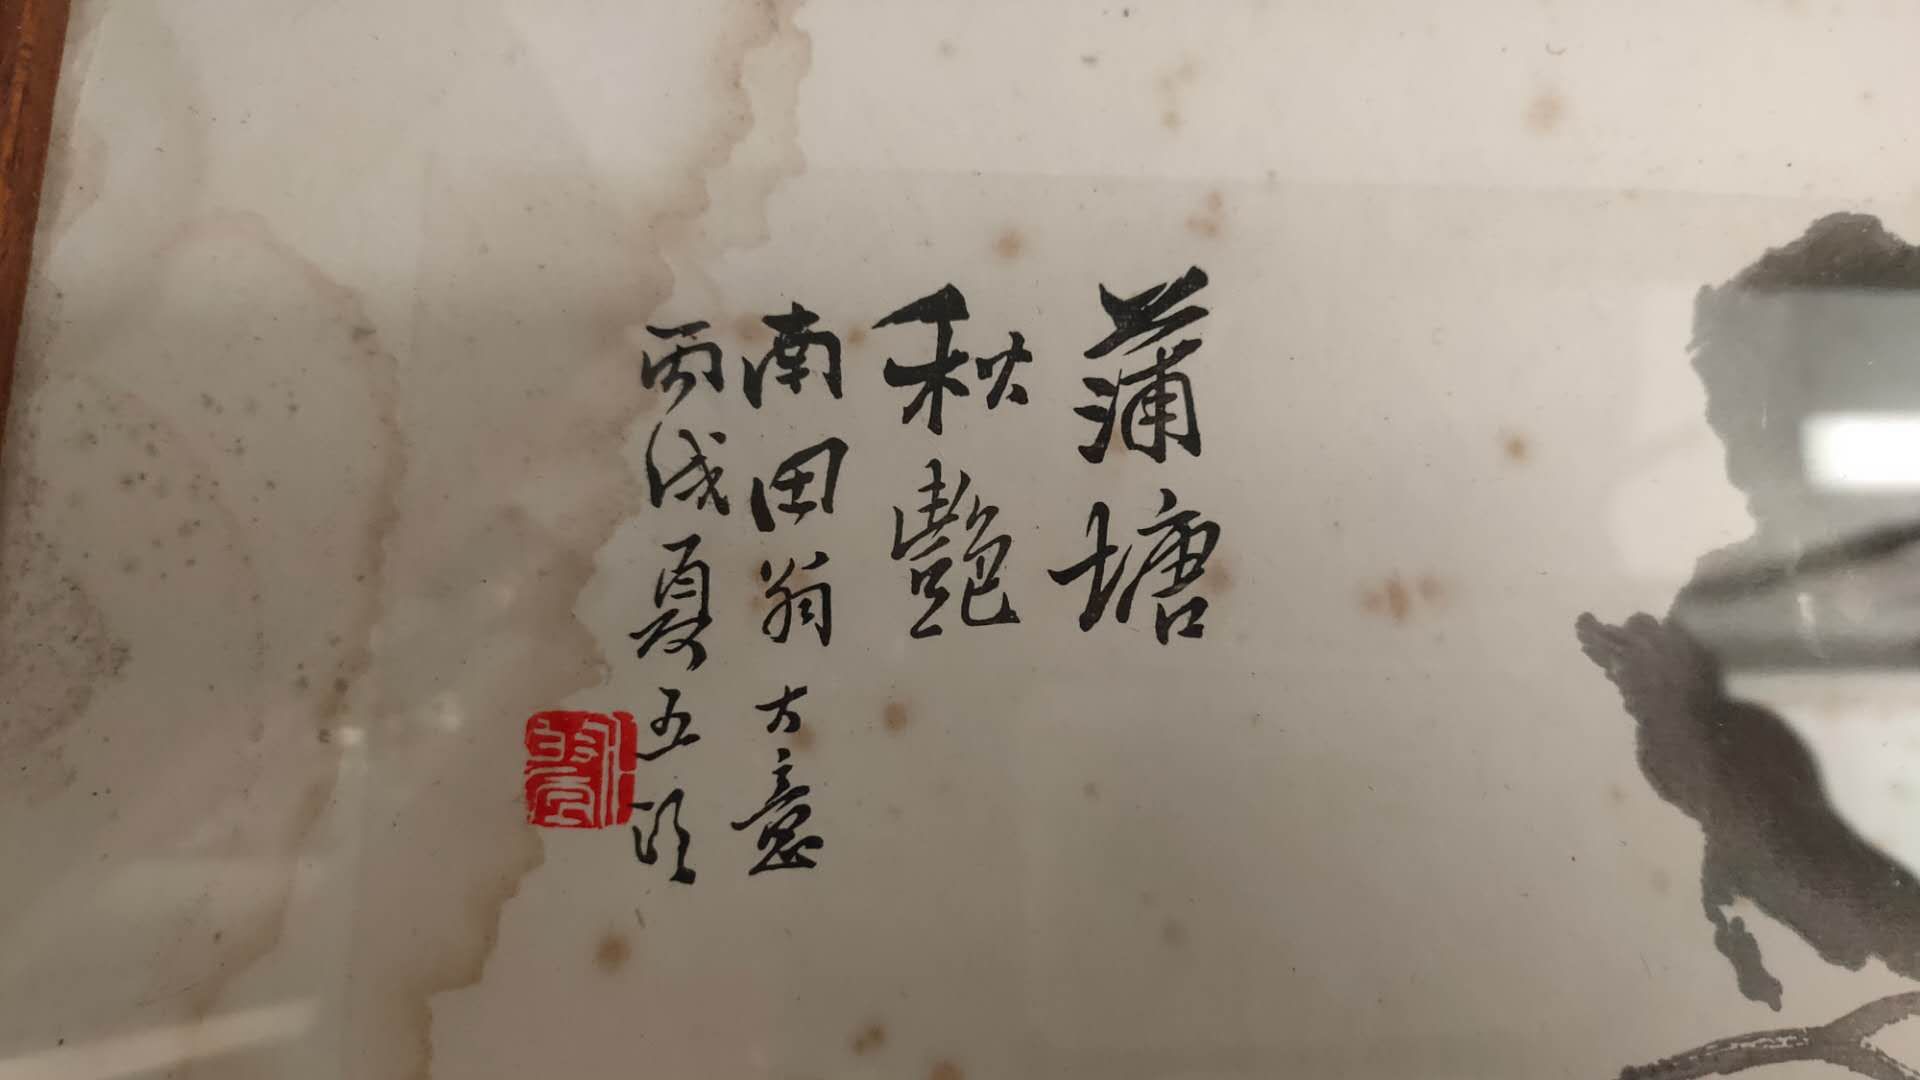 蒲塘
秋艷
南田翁大意
丙戌夏五